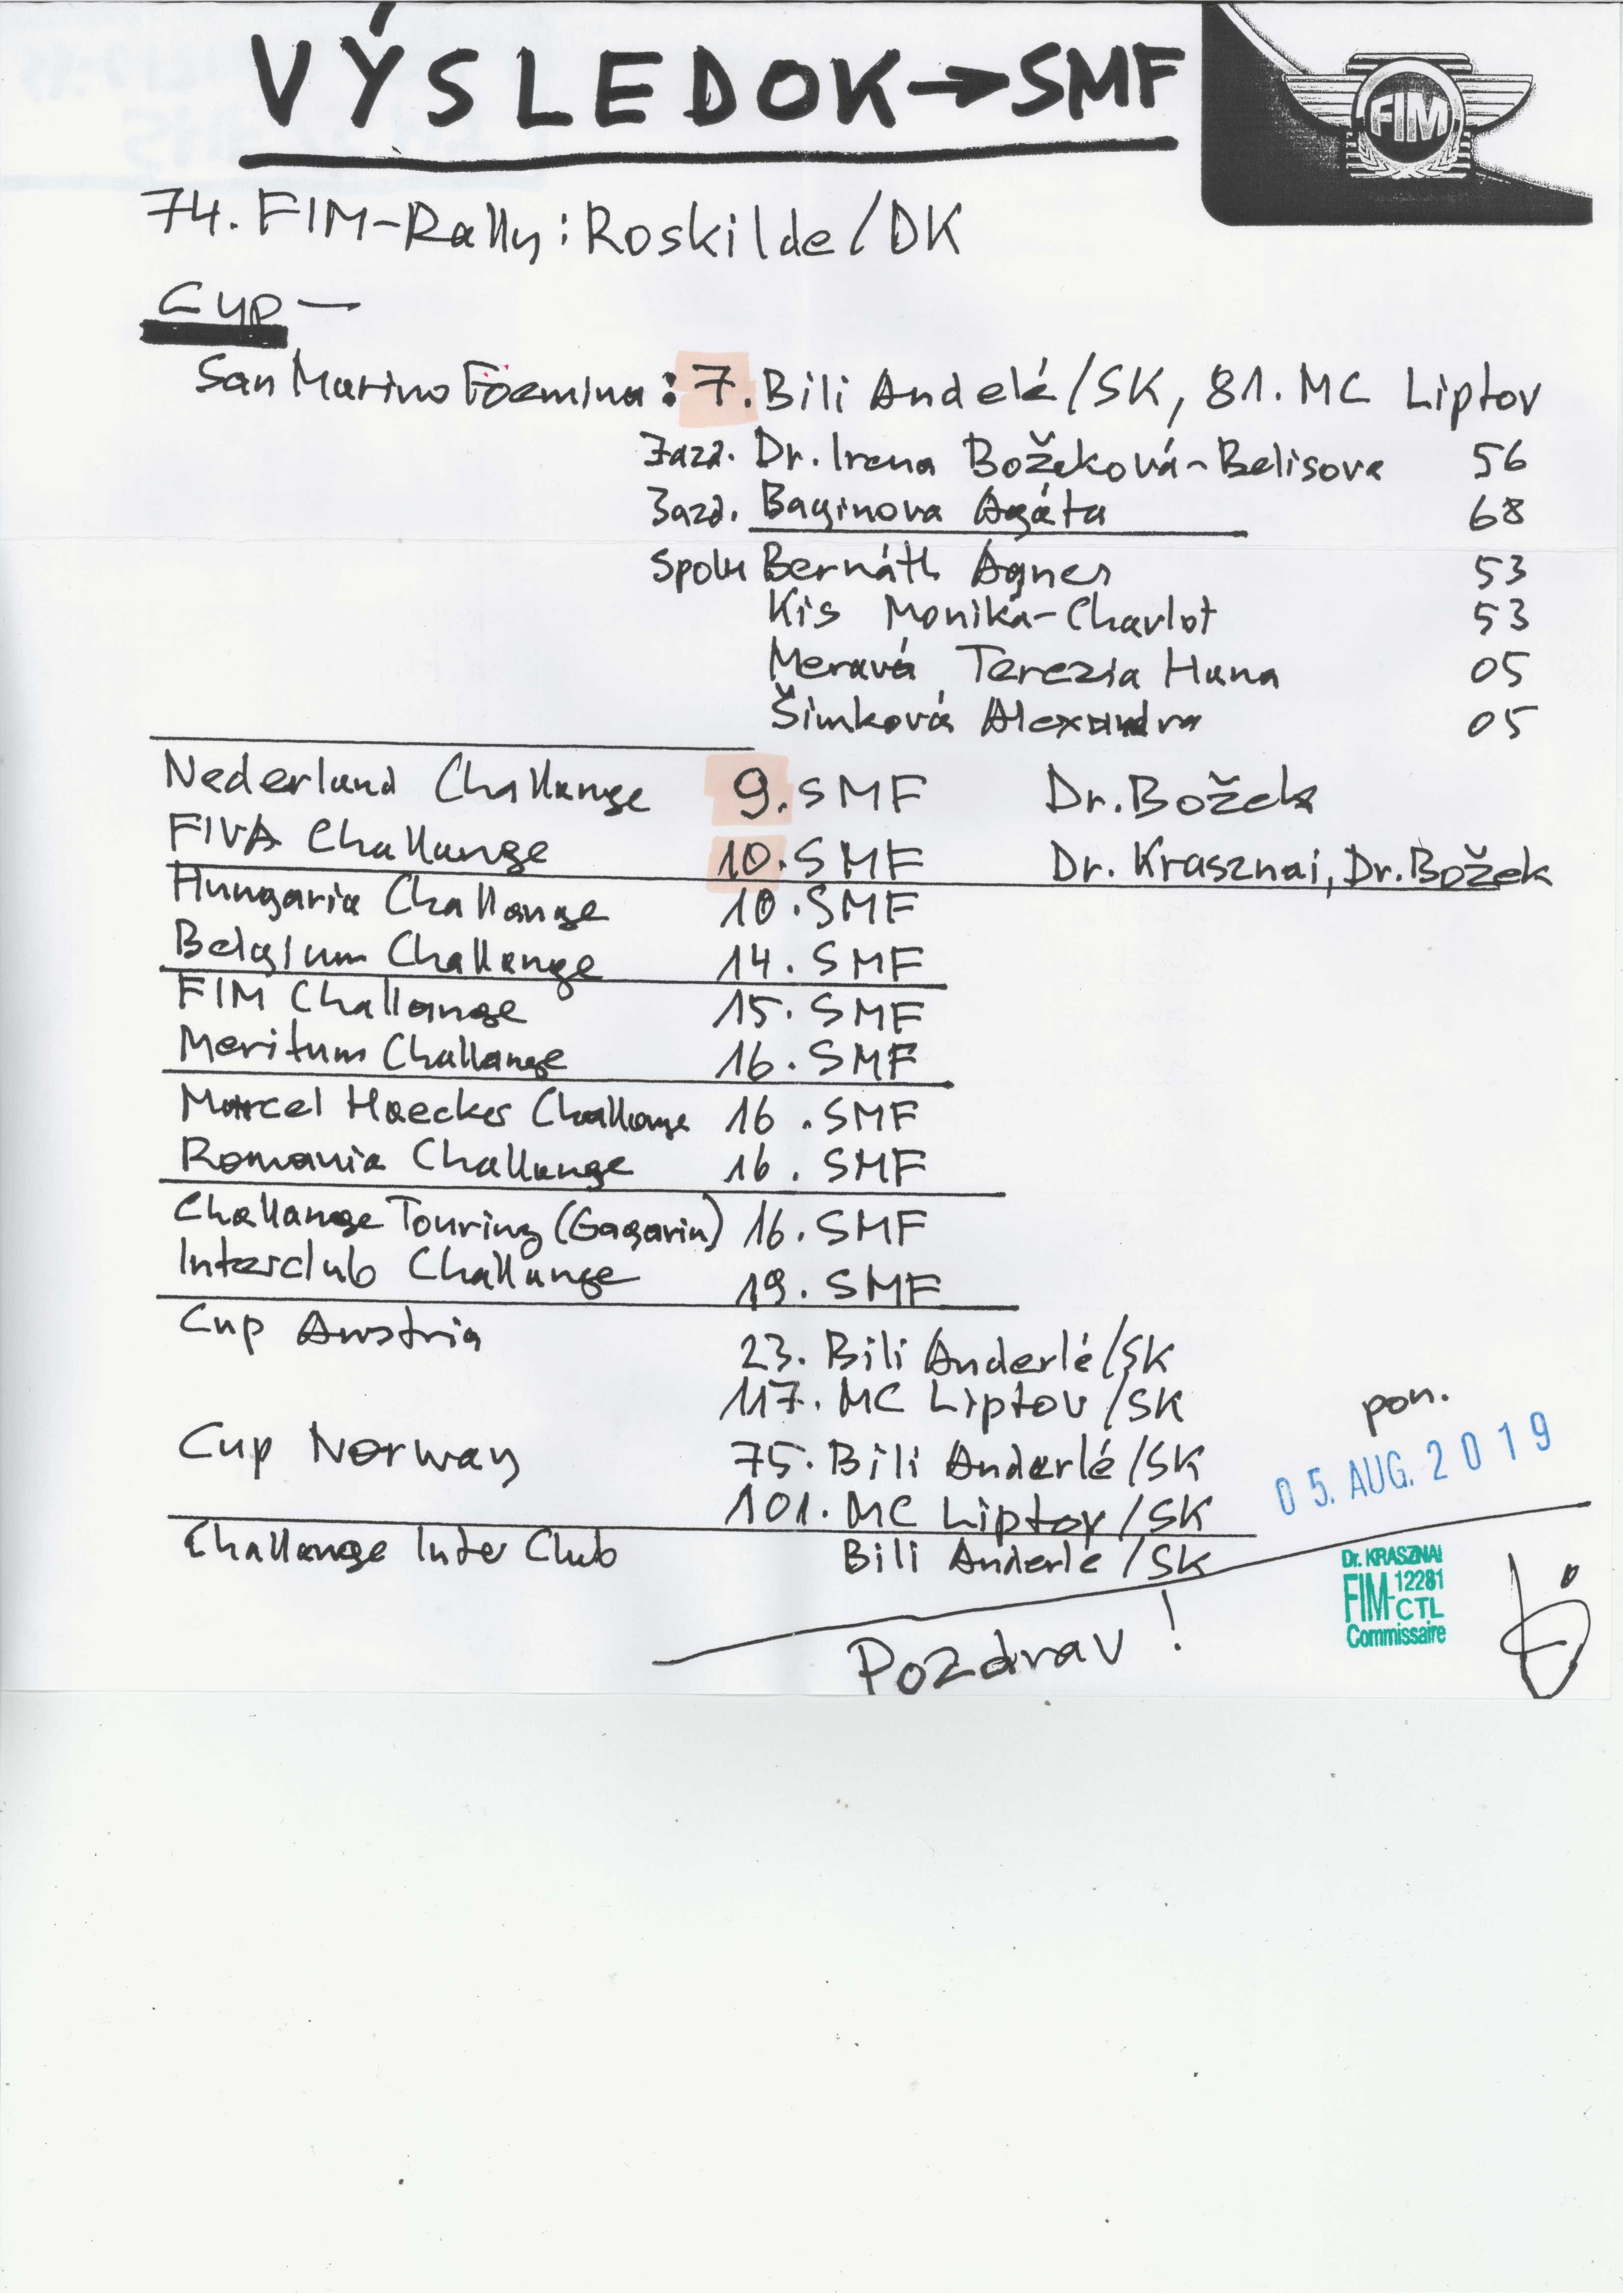 VÝSLEDOK → SMF
FIM
74. FIM-Rally: Roskilde/DK
Cup —
San Marino Föemina: 7. Bili Andelé/SK, 81. MC Liptov
Jazd. Dr. Irena Božeková-Belisova 56
Jazd. Baginova Agáta 68
Spolu Bernáth Ágnes 53
Kis Monika-Charlot 53
Meravá Terezia Hana 05
Šimková Alexandra 05
Nederland Challange 9. SMF Dr. Božek
FIVA Challange 10. SMF Dr. Krasznai, Dr. Božek
Hungaria Challange 10. SMF
Belgium Challange 14. SMF
FIM Challange 15. SMF
Meritum Challange 16. SMF
Marcel Haecker Challange 16. SMF
Romania Challange 16. SMF
Challange Touring (Gagarin) 16. SMF
Interclub Challange 19. SMF
Cup Austria 23. Bili Anderlé/SK
117. MC Liptov/SK
Cup Norway 75. Bili Anderlé/SK
101. MC Liptov/SK
Challange Inter Club Bili Anderle/SK
pon.
05. AUG. 2019
Pozdrav!
Dr. KRASZNAI
FIM 12281
CTL
Commissaire